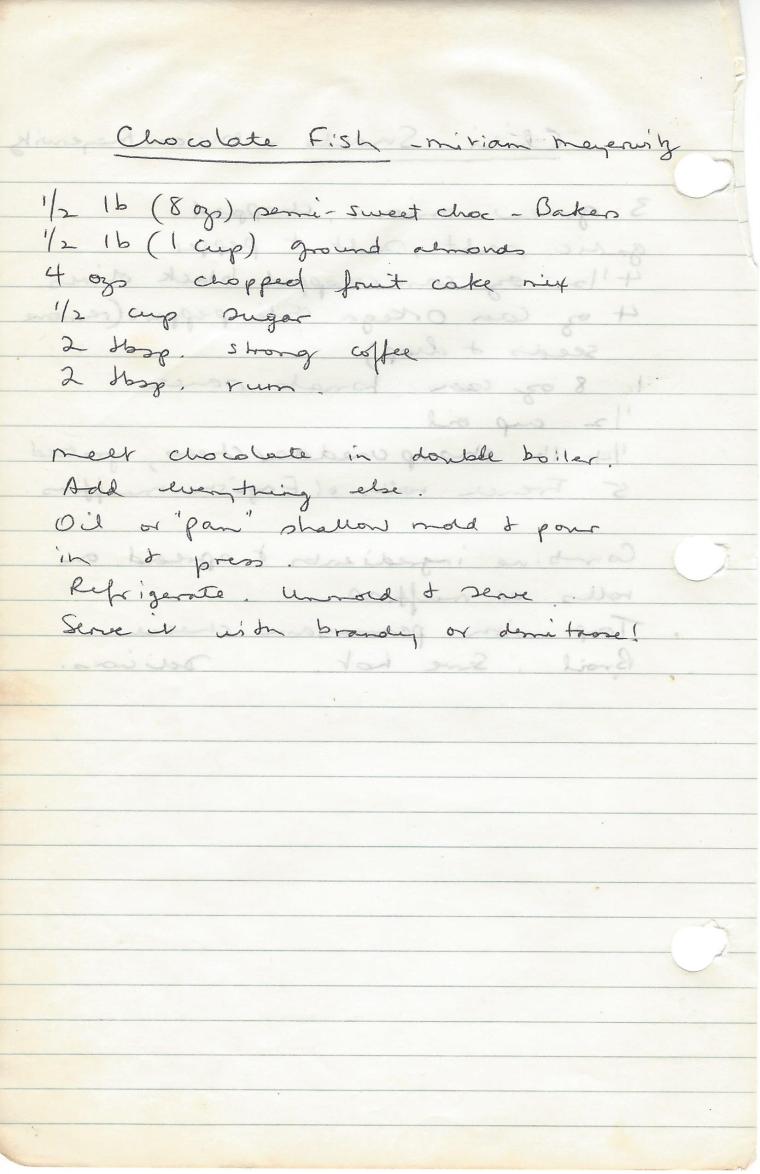 Chocolate Fish - Miriam Meyerwitz
1/2 lb (8 ozs) semi-sweet choc - Bakers
1/2 lb (1 cup) ground almonds
4 ozs chopped fruit cake mix
1/2 cup sugar
2 tbsp. strong coffee
2 tbsp. rum.
Melt chocolate in double boiler.
Add everything else.
Oil or "Pam" shallow mold & pour
in & press.
Refrigerate. Unmold & serve.
Serve it with brandy or demitasse!